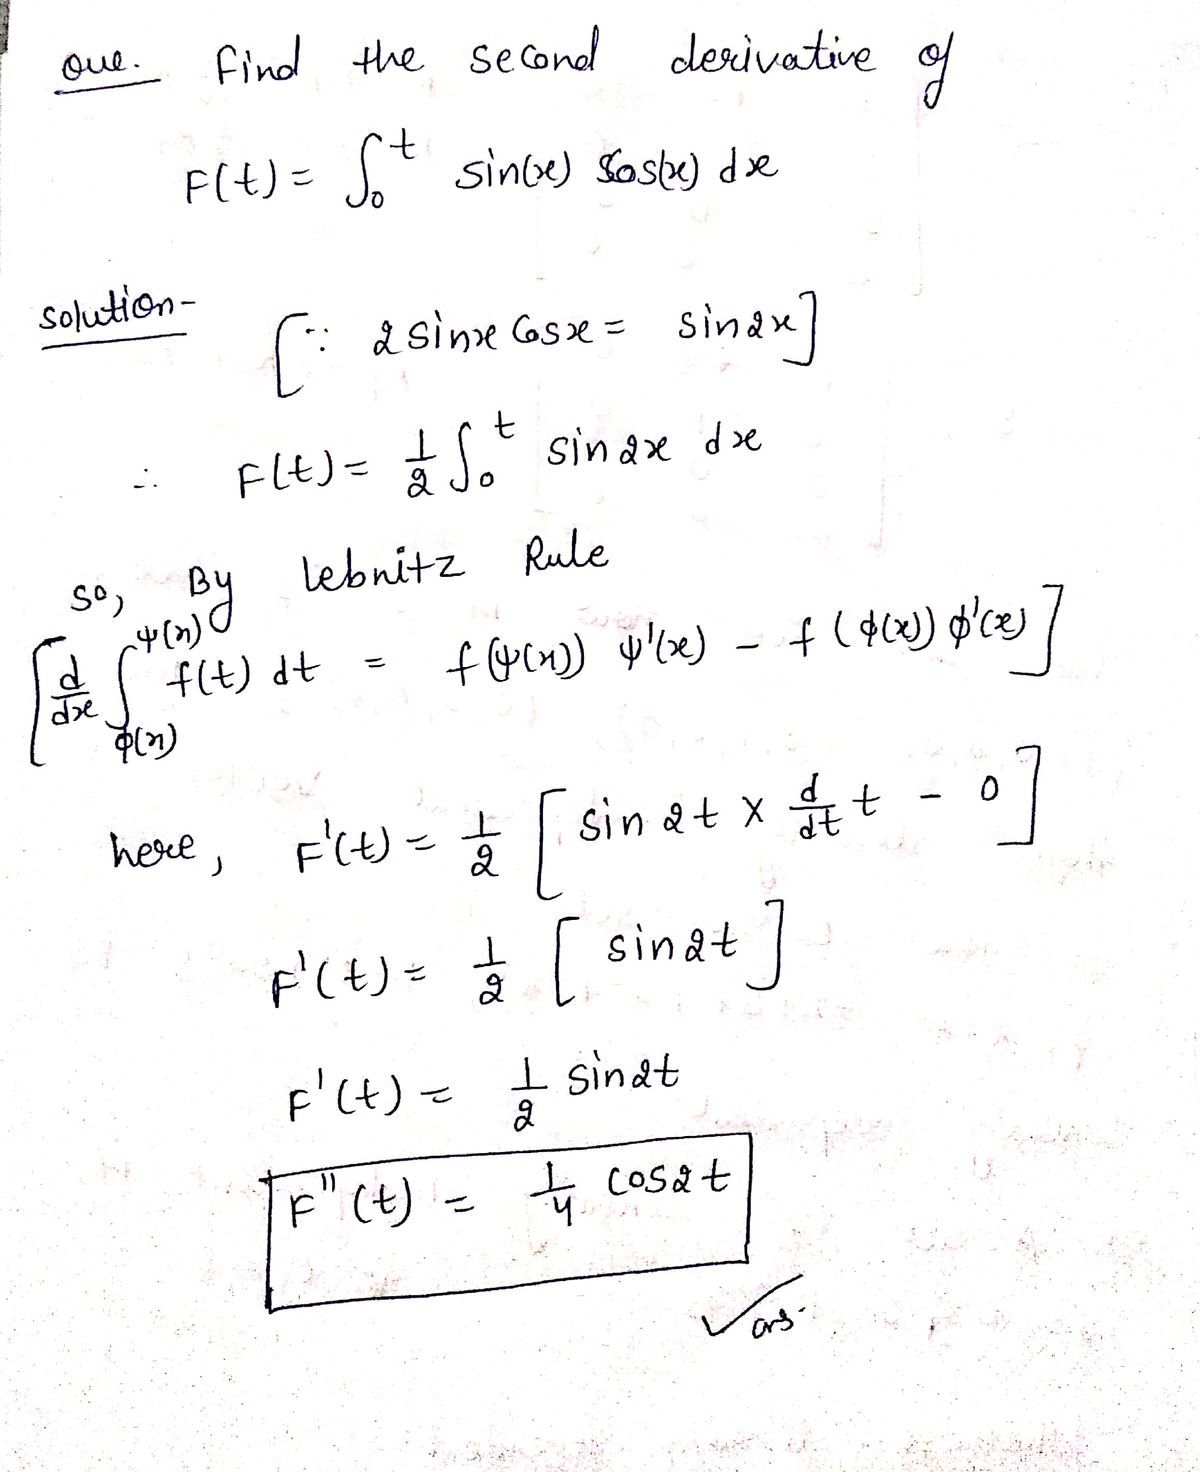 Que. Find the second derivative of
F(t) = ∫₀ᵗ sin(x) cos(x) dx
solution-
[∵ 2 sinx cosx = sin2x]
∴ F(t) = 1/2 ∫₀ᵗ sin2x dx
so, By lebnitz Rule
[d/dx ∫_{φ(x)}^{ψ(x)} f(t) dt = f(ψ(x)) ψ'(x) - f(φ(x)) φ'(x)]
here, F'(t) = 1/2 [sin2t × d/dt t - 0]
F'(t) = 1/2 [sin2t]
F'(t) = 1/2 sin2t
F''(t) = 1/4 cos2t
✓ ans.